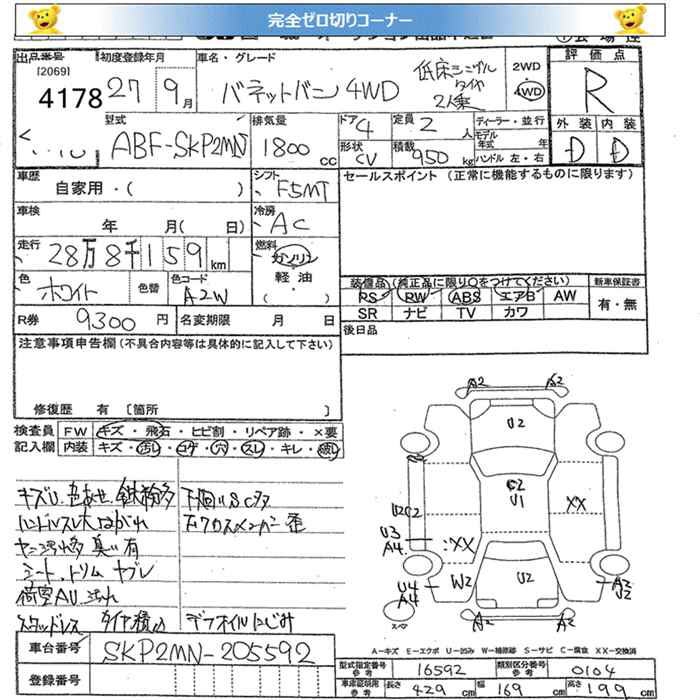 完全ゼロ切りコーナー
出品番号 初度登録年月 車名・グレード 2WD 4WD 評価点
[2069]
4178 27年 9月 バネットバン 4WD 低床シングルタイヤ 2人乗 R
型式 排気量 ドア 定員 ディーラー・並行 外装 内装
ABF-SKP2MN 1800cc 4 2人 モデル年式 年 D D
形状 CV 積載 950kg ハンドル 左・右
車歴 シフト セールスポイント (正常に機能するものに限ります)
自家用・( ) F5MT
車検 年 月( 日) 冷房 AC
走行 28万8千159km 燃料 ガソリン 軽油 ・ ( )
色 ホワイト 色替 色コード A2W
装備品(純正品に限り○をつけてください) 新車保証書
PS PW ABS エアB AW 有・無
SR ナビ TV カワ
R券 9300円 名変期限 月 日
後日品
注意事項申告欄 (不具合内容等は具体的に記入して下さい)
修復歴 有 [箇所 ]
検査員 FW キズ・飛石・ヒビ割・リペア跡・×要
記入欄 内装 キズ・汚レ・コゲ・穴・スレ・キレ・
キズU.色あせ.鉄粉多 下廻りSC多
ハンドルスレ大 下クロスメンバー歪
シート.トリム ヤブレ
荷室AU.汚れ
スタッドレス タイヤ積込 デフオイルにじみ
A2 A2
U2
C2
U1
U2C2 XX
U3
A4 XX
U4
A4 W2 U2 A2
U2
A2 A2
A-キズ E-エクボ U-凹み W-補修跡 S-サビ C-腐食 XX-交換済
車台番号 SKP2MN-205592
登録番号
型式指定番号 参考 16592 類別区分番号 参考 0104
車庫証明用 参考 長さ 429cm 幅 169cm 高さ 199cm